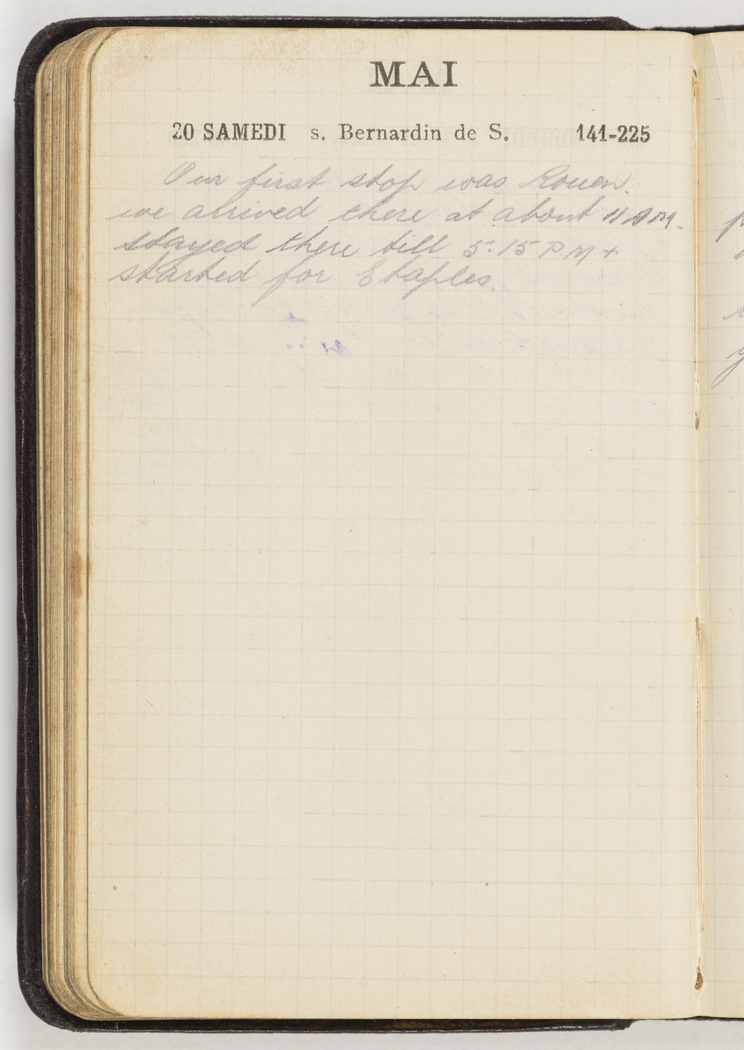 MAI
20 SAMEDI s. Bernardin de S. 141-225
Our first stop was Rouen.
we arrived there at about 11 AM.
stayed there till 5.15 PM +
started for Etaples.